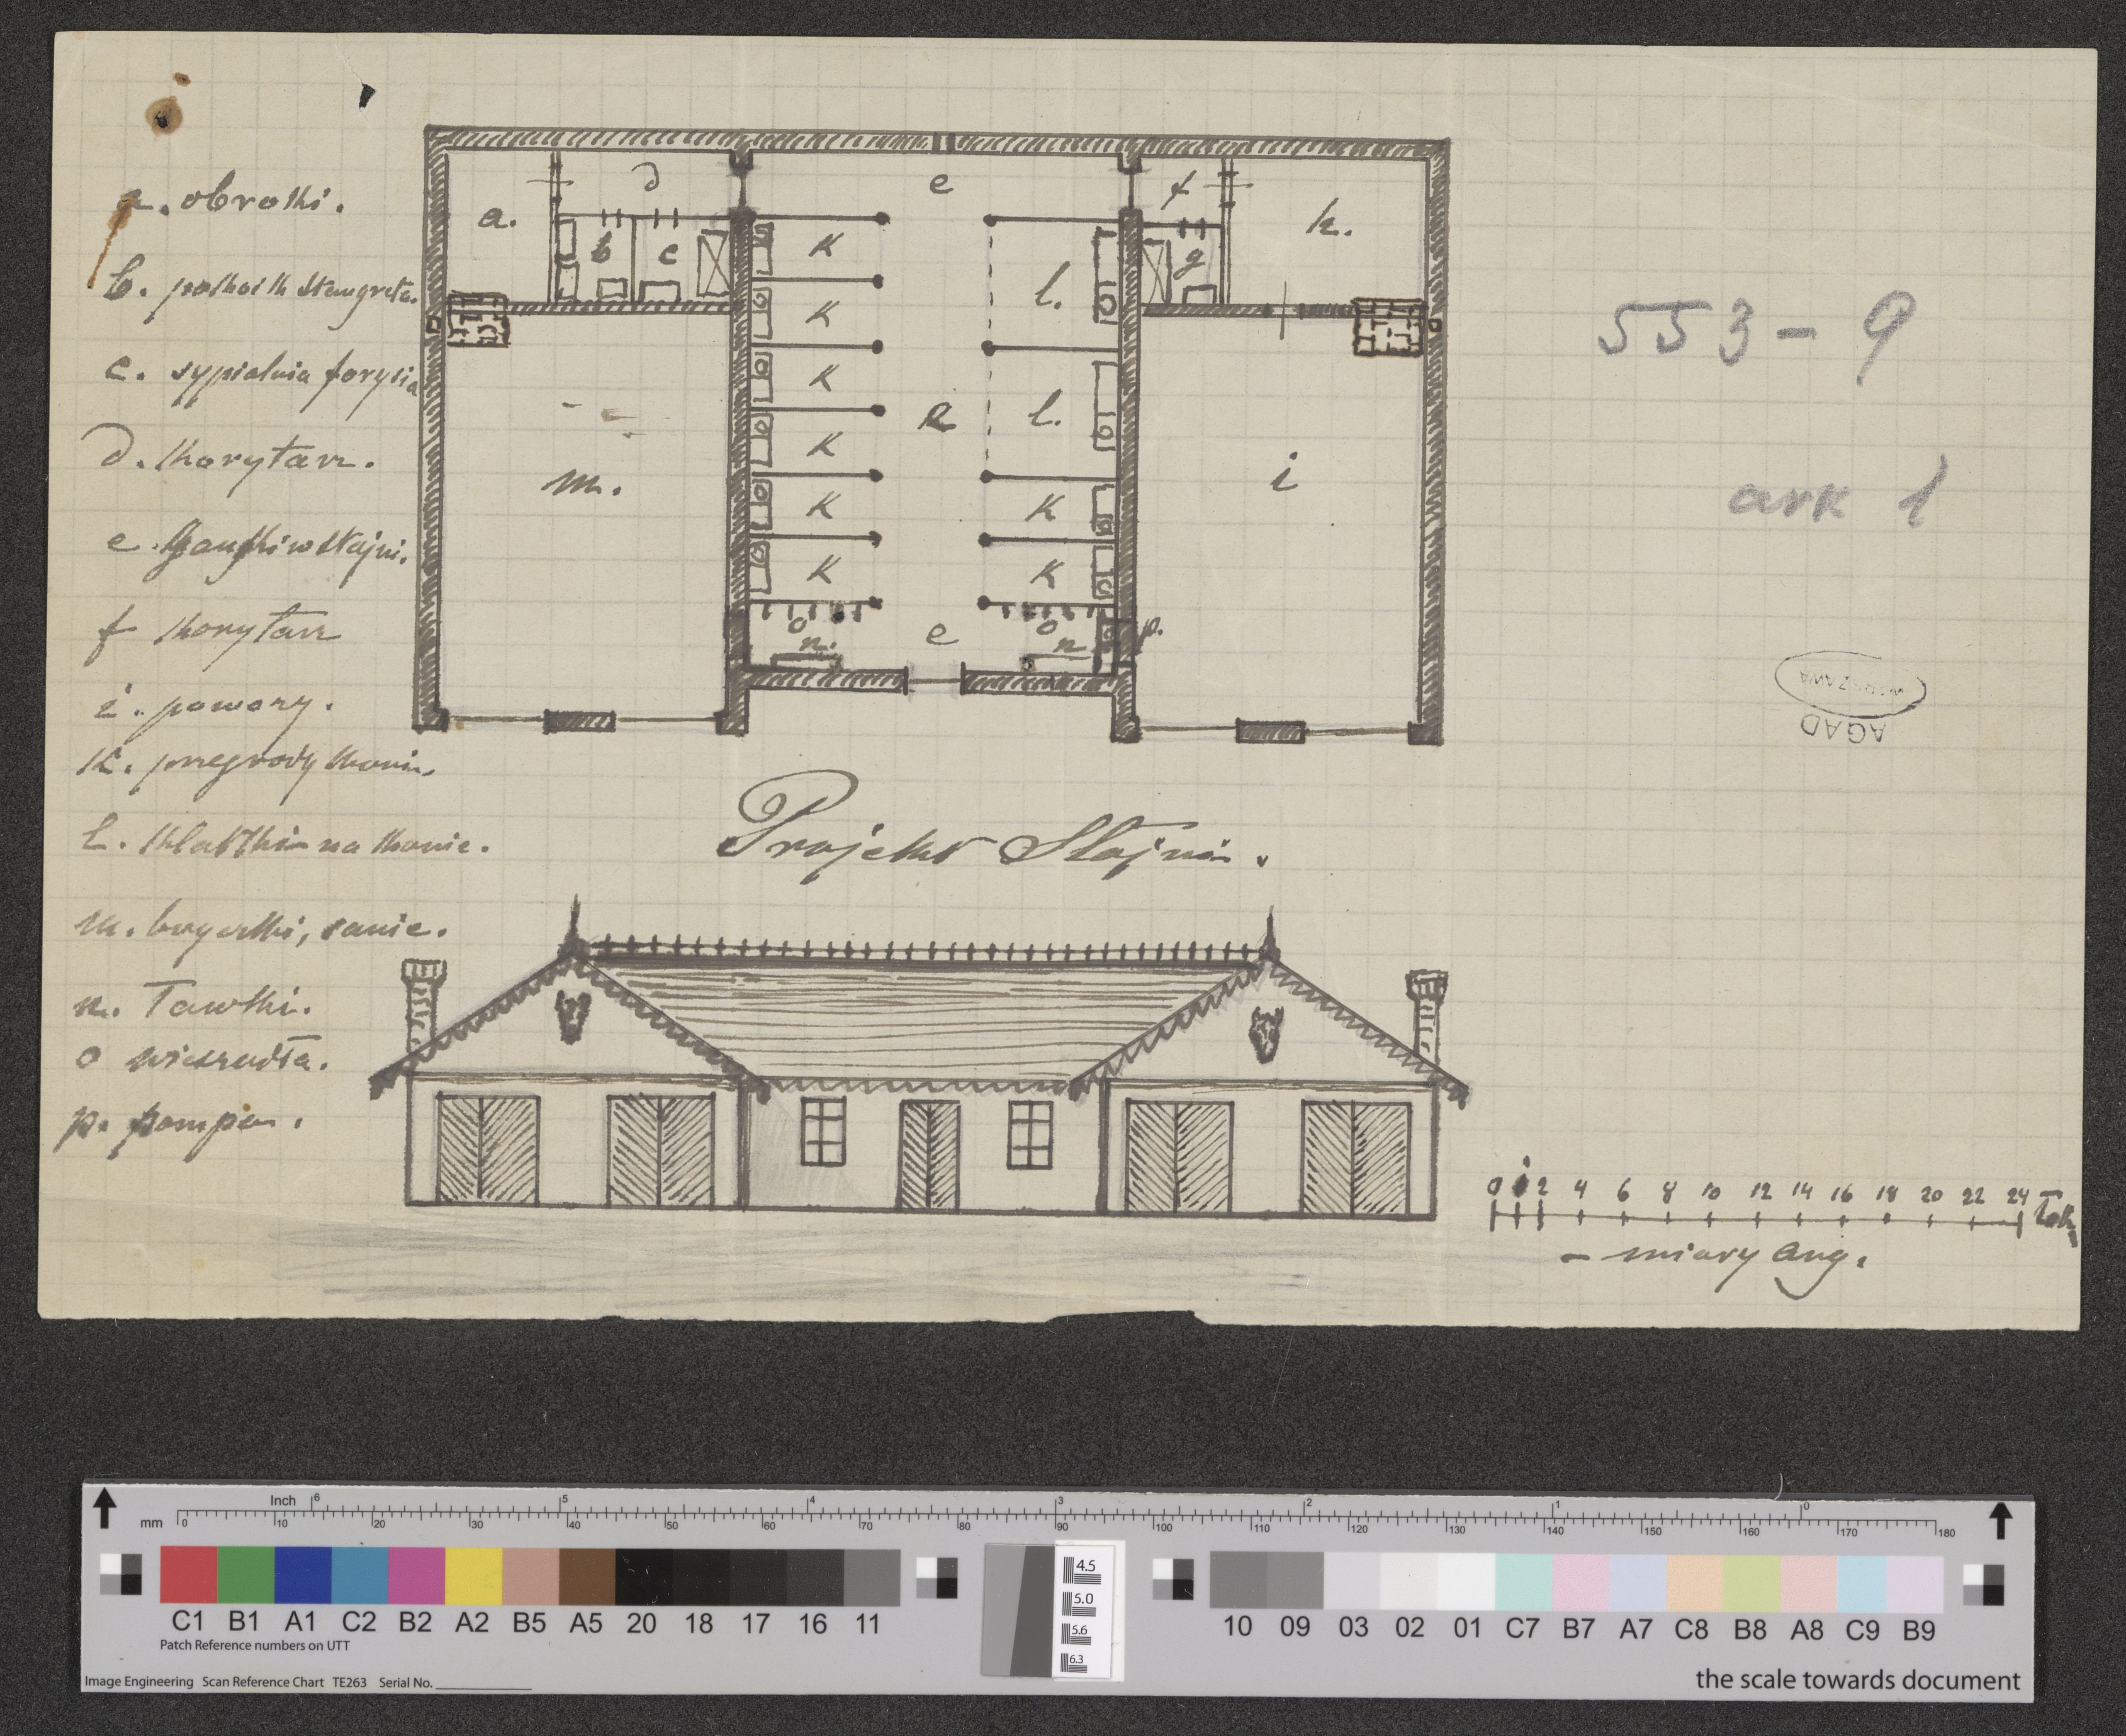 a. obroki.
b. pokoik stangreta.
c. sypialnia forysia
d. korytarz.
e. Ganki w stajni.
f korytarz
i. powozy.
k. przegrody konin.
l. klatki na konie.
m. bryczki, sanie.
n. Ławki.
o wieszadła.
p. pompa.
a.
d
b
c
e
f
g
k.
K
K
K
K
K
K
l.
l.
K
K
e
m.
i
o
n.
e
o
n
p.
553-9
ark 1
WARSZAWA
AGAD
Projekt Stajni.
0 1 2 4 6 8 10 12 14 16 18 20 22 24 Łok
- miary ang.
Inch 6 5 4 3 2 1 0
mm 0 10 20 30 40 50 60 70 80 90 100 110 120 130 140 150 160 170 180
C1 B1 A1 C2 B2 A2 B5 A5 20 18 17 16 11
4.5
5.0
5.6
6.3
10 09 03 02 01 C7 B7 A7 C8 B8 A8 C9 B9
Patch Reference numbers on UTT
Image Engineering Scan Reference Chart TE263 Serial No.
the scale towards document